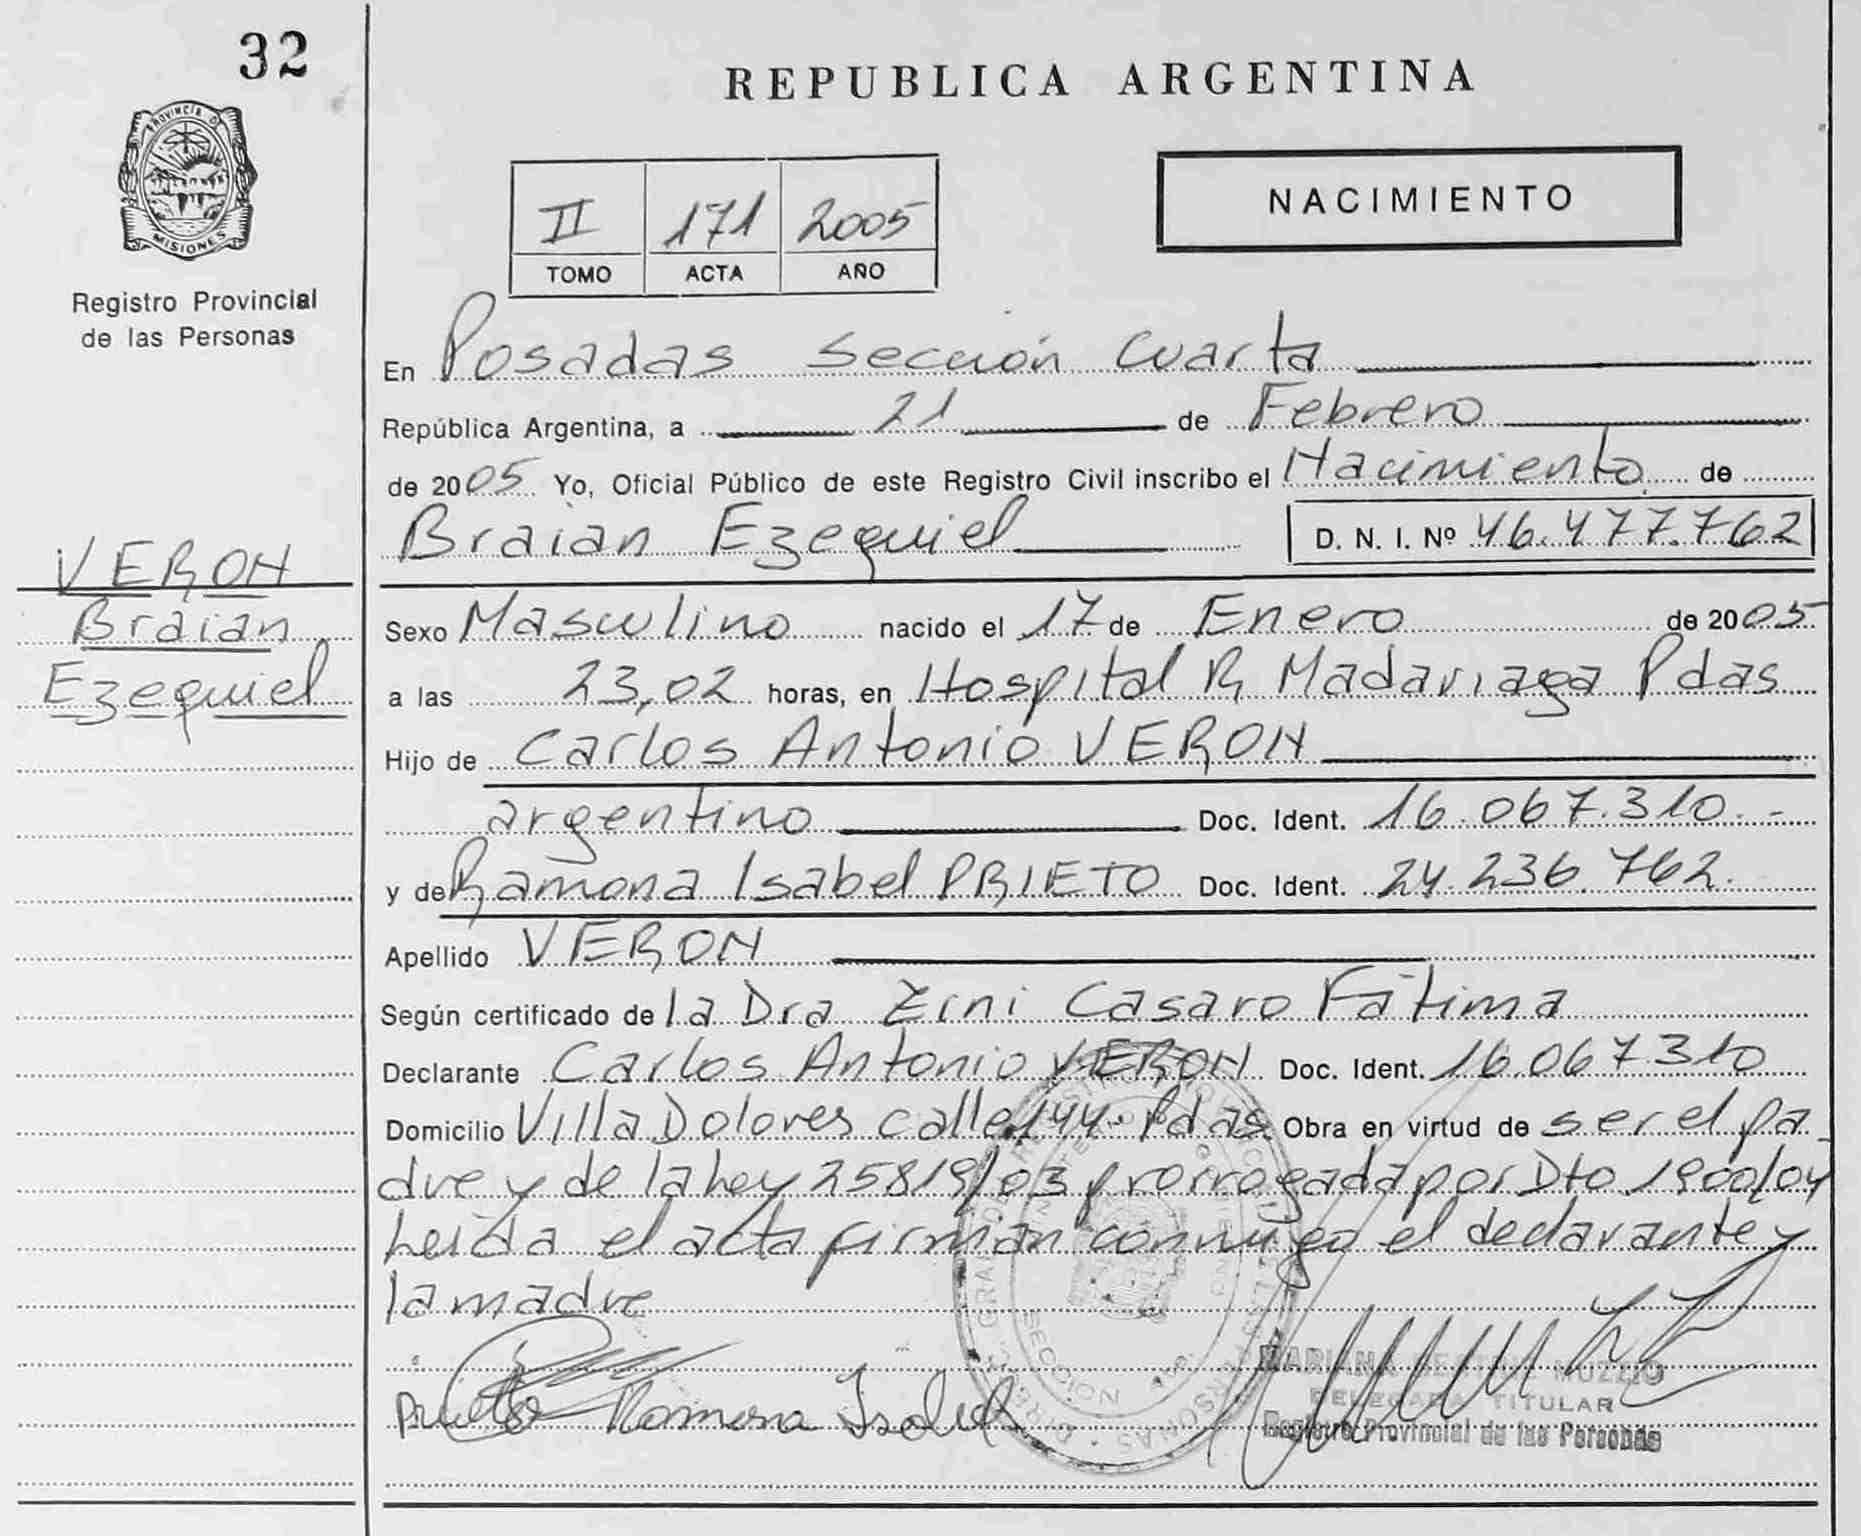 32
PROVINCIA D
MISIONES
Registro Provincial
de las Personas
VERON
Braian
Ezequiel
REPUBLICA ARGENTINA
II 171 2005
TOMO ACTA AÑO
NACIMIENTO
En Posadas sección cuarta
República Argentina, a 21 de Febrero
de 2005 Yo, Oficial Público de este Registro Civil inscribo el Nacimiento de
Braian Ezequiel D. N. I. Nº 46.477.762
Sexo Masculino nacido el 17 de Enero de 2005
a las 23,02 horas, en Hospital R Madariaga Pdas
Hijo de Carlos Antonio VERON
argentino Doc. Ident. 16.067.310.-
y de Ramona Isabel PRIETO Doc. Ident. 24.236.762.
Apellido VERON
Según certificado de la Dra Zini Casaro Fátima
Declarante Carlos Antonio VERON Doc. Ident. 16.067310
Domicilio Villa Dolores calle 144. Pdas. Obra en virtud de ser el pa
dre y de la Ley 25819/03 prorrogada por Dto 1900/04
Leída el acta firman conmigo el declarante y
la madre
Ramona Isabel
MUZZIO
DELEGADA TITULAR
Registro Provincial de las Personas
SECCION